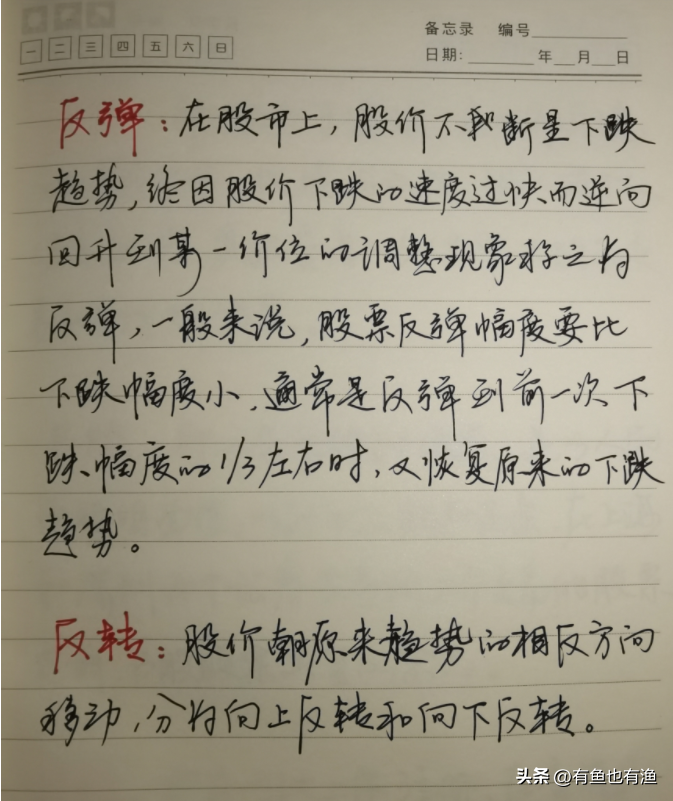 备忘录 编号
一 二 三 四 五 六 日
日期: 年 月 日
反弹：在股市上，股价不断呈下跌
趋势，终因股价下跌的速度过快而逆向
回升到某一价位的调整现象称之为
反弹，一般来说，股票反弹幅度要比
下跌幅度小，通常是反弹到前一次下
跌幅度的1/3左右时，又恢复原来的下跌
趋势。
反转：股价朝原来趋势的相反方向
移动，分为向上反转和向下反转。
头条 @有鱼也有渔